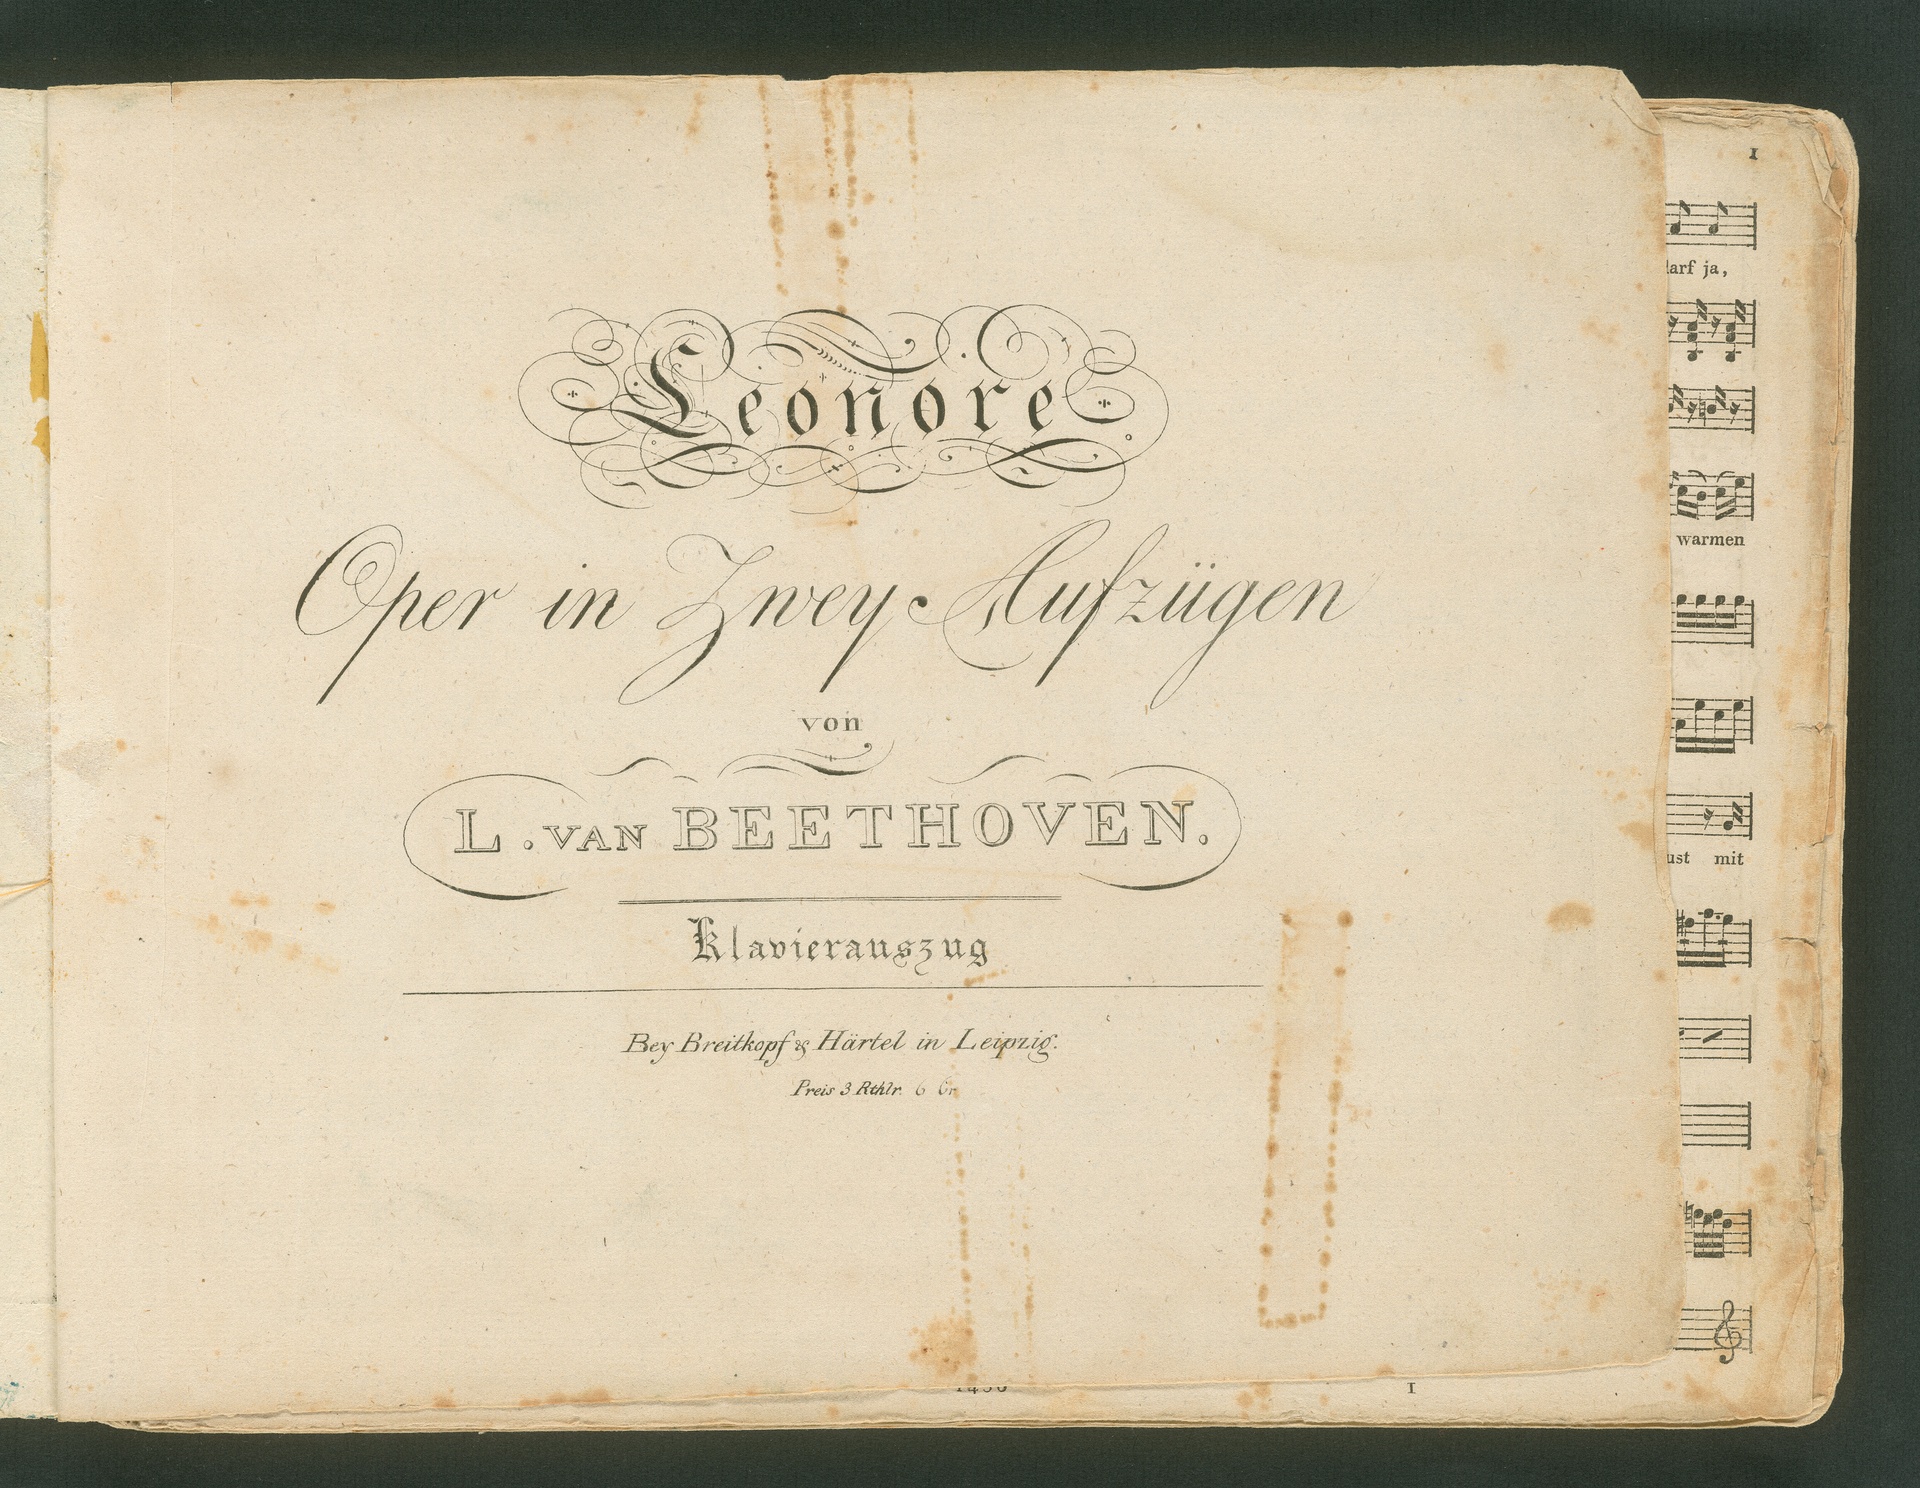 Leonore
Oper in Zwey Aufzügen
von
L. VAN BEETHOVEN.
Klavierauszug
Bey Breitkopf & Härtel in Leipzig.
Preis 3 Rthlr. 6 Gr.
1
darf ja,
warmen
mit
1